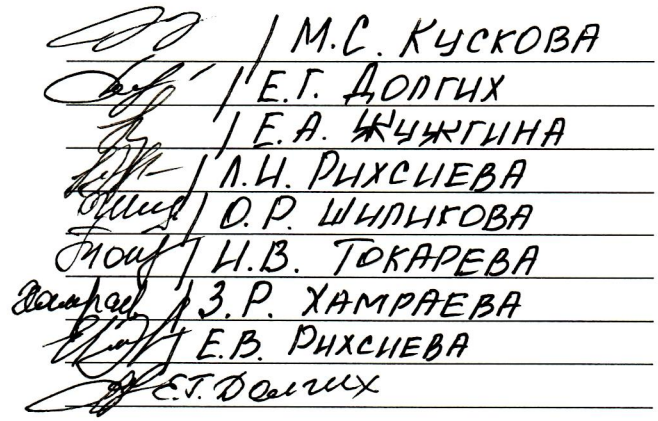 / М.С. КУСКОВА
/ Е.Г. ДОЛГИХ
/ Е.А. ЖУЖГИНА
/ Л.И. РИХСИЕВА
/ О.Р. ШИЛИКОВА
/ И.В. ТОКАРЕВА
/ З.Р. ХАМРАЕВА
/ Е.В. РИХСИЕВА
Е.Г. Долгих